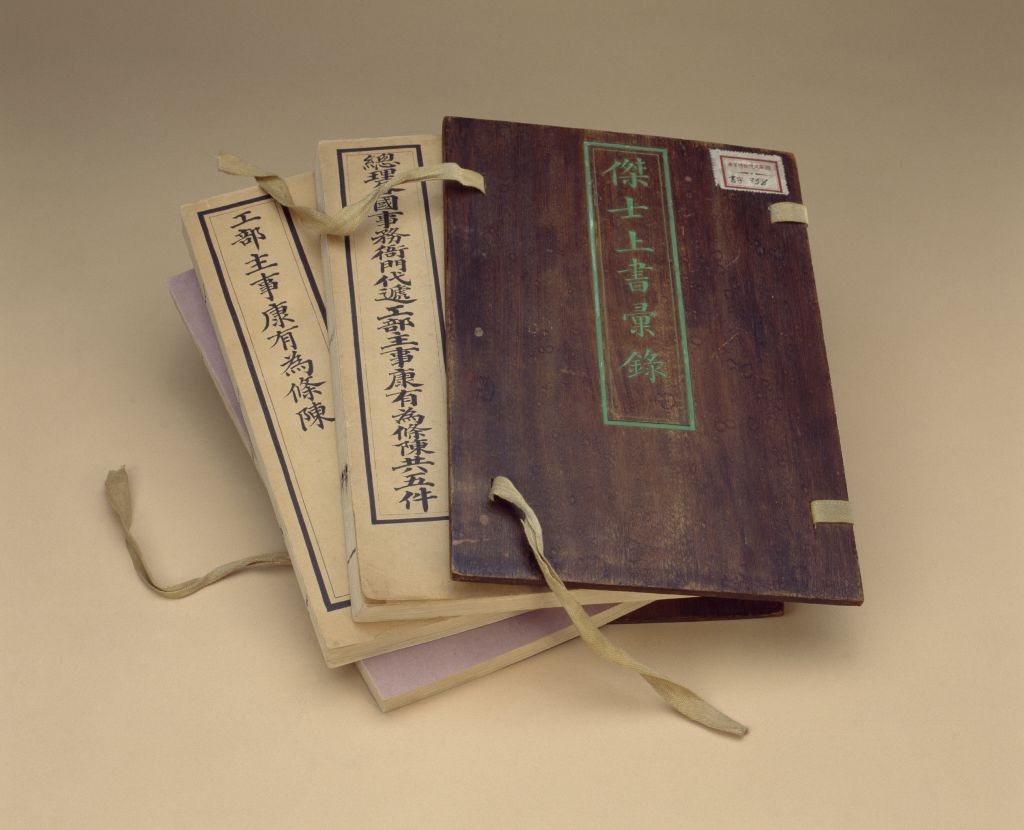 傑士上書彙錄
總理各國事務衙門代遞工部主事康有為條陳共五件
工部主事康有為條陳